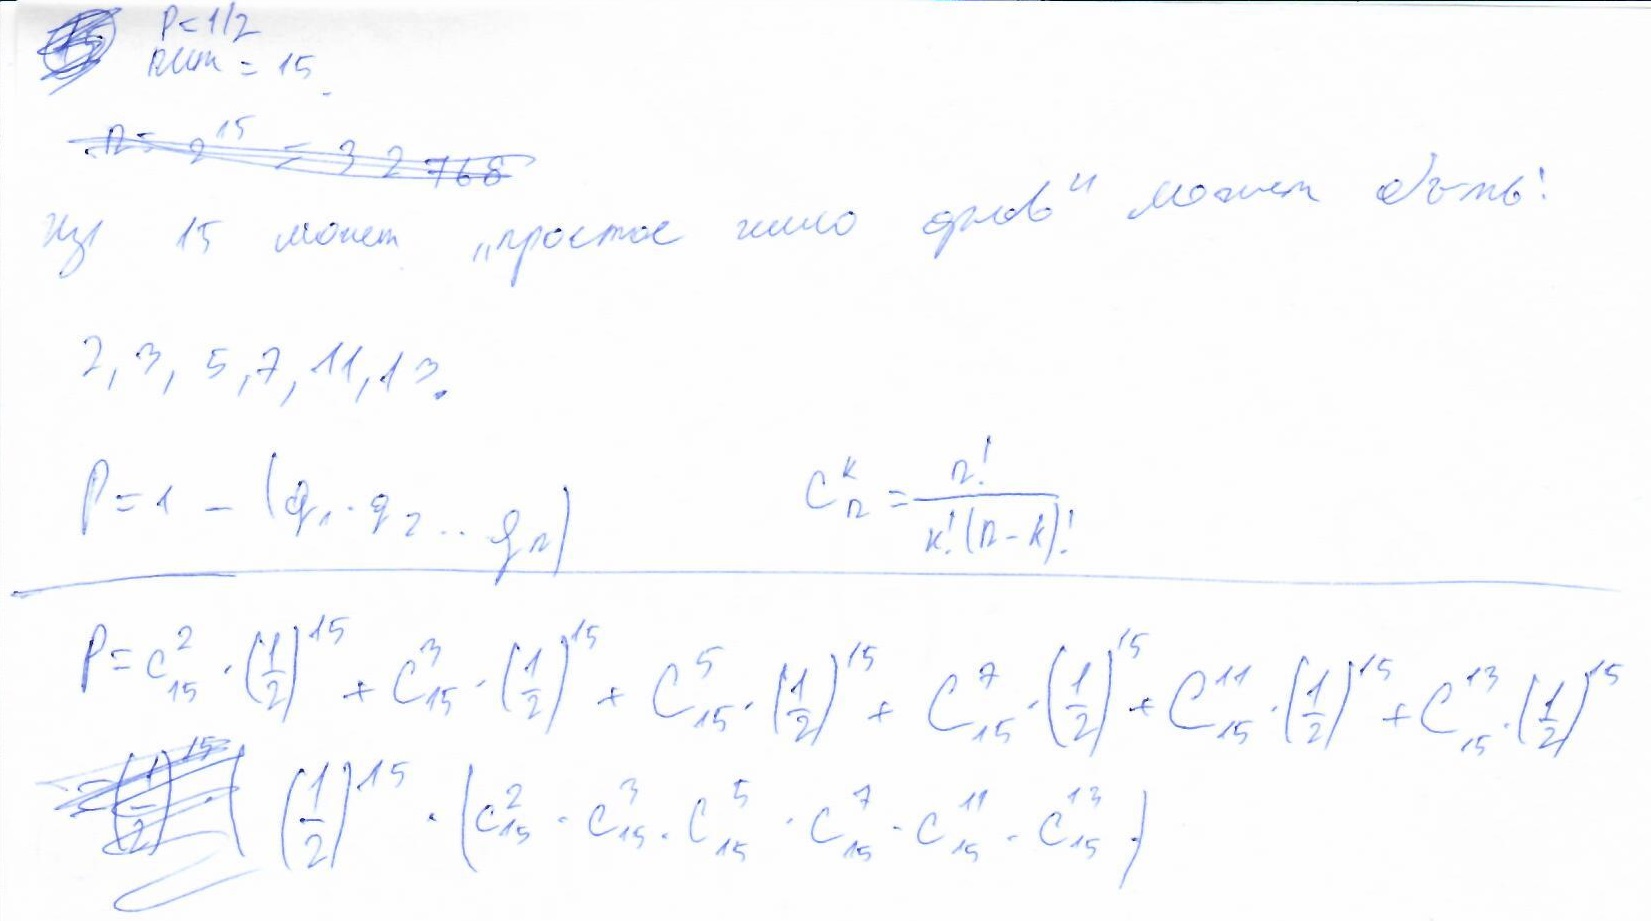 P=1/2
n = 15
n = 2^15 = 32 768
Из 15 может „простое число орлов" может быть:
2, 3, 5, 7, 11, 13.
P = 1 - (q₁ · q₂ ... qₙ)
C_n^k = n! / k!(n-k)!
P = C_15^2 · (1/2)^15 + C_15^3 · (1/2)^15 + C_15^5 · (1/2)^15 + C_15^7 · (1/2)^15 + C_15^11 · (1/2)^15 + C_15^13 · (1/2)^15
= (1/2)^15 · ( (1/2)^15 · (C_15^2 · C_15^3 · C_15^5 · C_15^7 · C_15^11 · C_15^13)